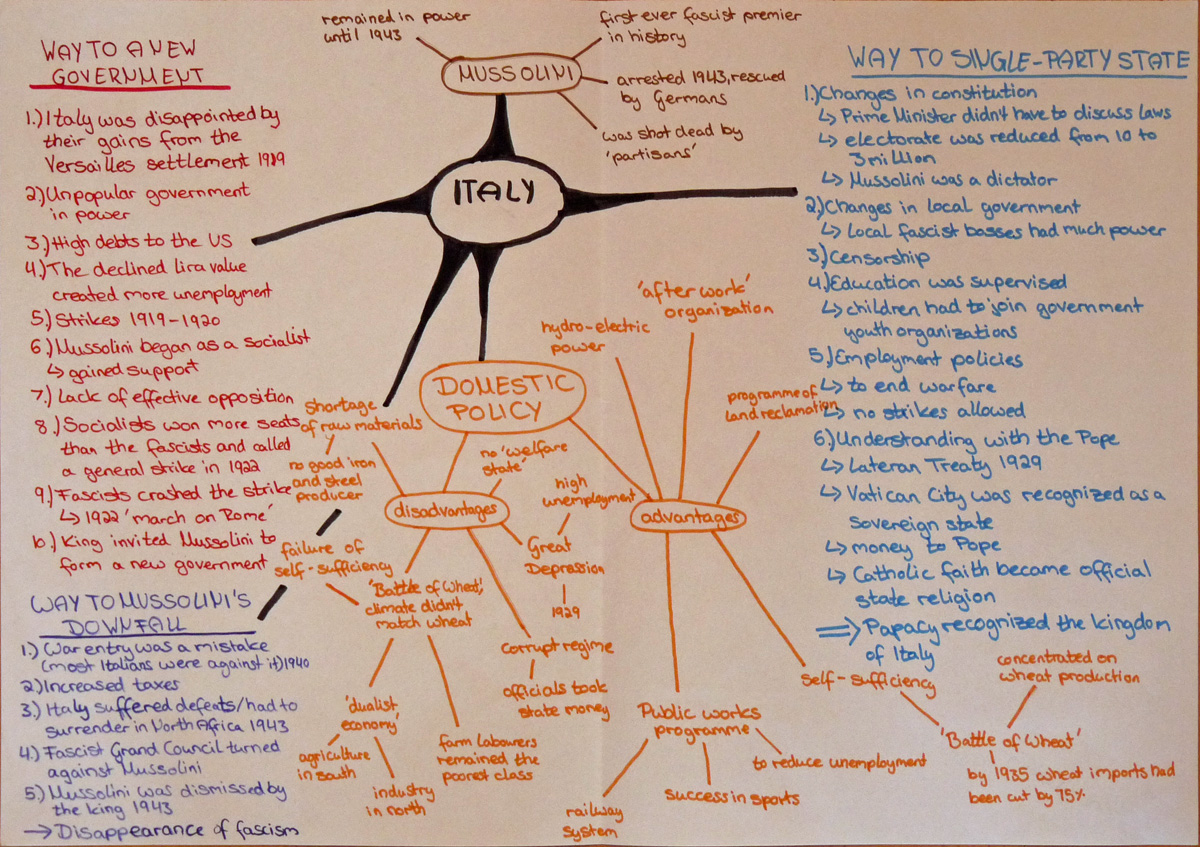 remained in power
until 1943
MUSSOLINI
first ever fascist premier
in history
arrested 1943, rescued
by Germans
was shot dead by
'partisans'
ITALY
WAY TO A NEW
GOVERNMENT
1.) Italy was disappointed by
their gains from the
Versailles settlement 1919
2.) Unpopular government
in power
3.) High debts to the US
4.) The declined lira value
created more unemployment
5.) Strikes 1919-1920
6.) Mussolini began as a socialist
↳ gained support
7.) Lack of effective opposition
8.) Socialists won more seats
than the fascists and called
a general strike in 1922
9.) Fascists crashed the strike
↳ 1922 'march on Rome'
10.) King invited Mussolini to
form a new government
WAY TO MUSSOLINI'S
DOWNFALL
1.) War entry was a mistake
(most Italians were against it) 1940
2.) Increased taxes
3.) Italy suffered defeats/had to
surrender in North Africa 1943
4.) Fascist Grand Council turned
against Mussolini
5.) Mussolini was dismissed by
the king 1943
→ Disappearance of fascism
DOMESTIC
POLICY
disadvantages
shortage
of raw materials
no good iron
and steel
producer
failure of
self-sufficiency
'Battle of Wheat',
climate didn't
match wheat
'dualist
economy'
agriculture
in south
industry
in north
farm labourers
remained the
poorest class
no 'welfare
state'
high
unemployment
Great
Depression
1929
corrupt regime
officials took
state money
advantages
hydro-electric
power
'after work'
organization
programme of
land reclamation
Public works
programme
railway
system
success in sports
to reduce unemployment
self-sufficiency
'Battle of Wheat'
concentrated on
wheat production
by 1935 wheat imports had
been cut by 75%
WAY TO SINGLE-PARTY STATE
1.) Changes in constitution
↳ Prime Minister didn't have to discuss laws
↳ electorate was reduced from 10 to
3 million
↳ Mussolini was a dictator
2.) Changes in local government
↳ Local fascist basses had much power
3.) Censorship
4.) Education was supervised
↳ children had to join government
youth organizations
5.) Employment policies
↳ to end warfare
↳ no strikes allowed
6.) Understanding with the Pope
↳ Lateran Treaty 1929
↳ Vatican City was recognized as a
sovereign state
↳ money to Pope
↳ Catholic faith became official
state religion
⇒ Papacy recognized the kingdom
of Italy